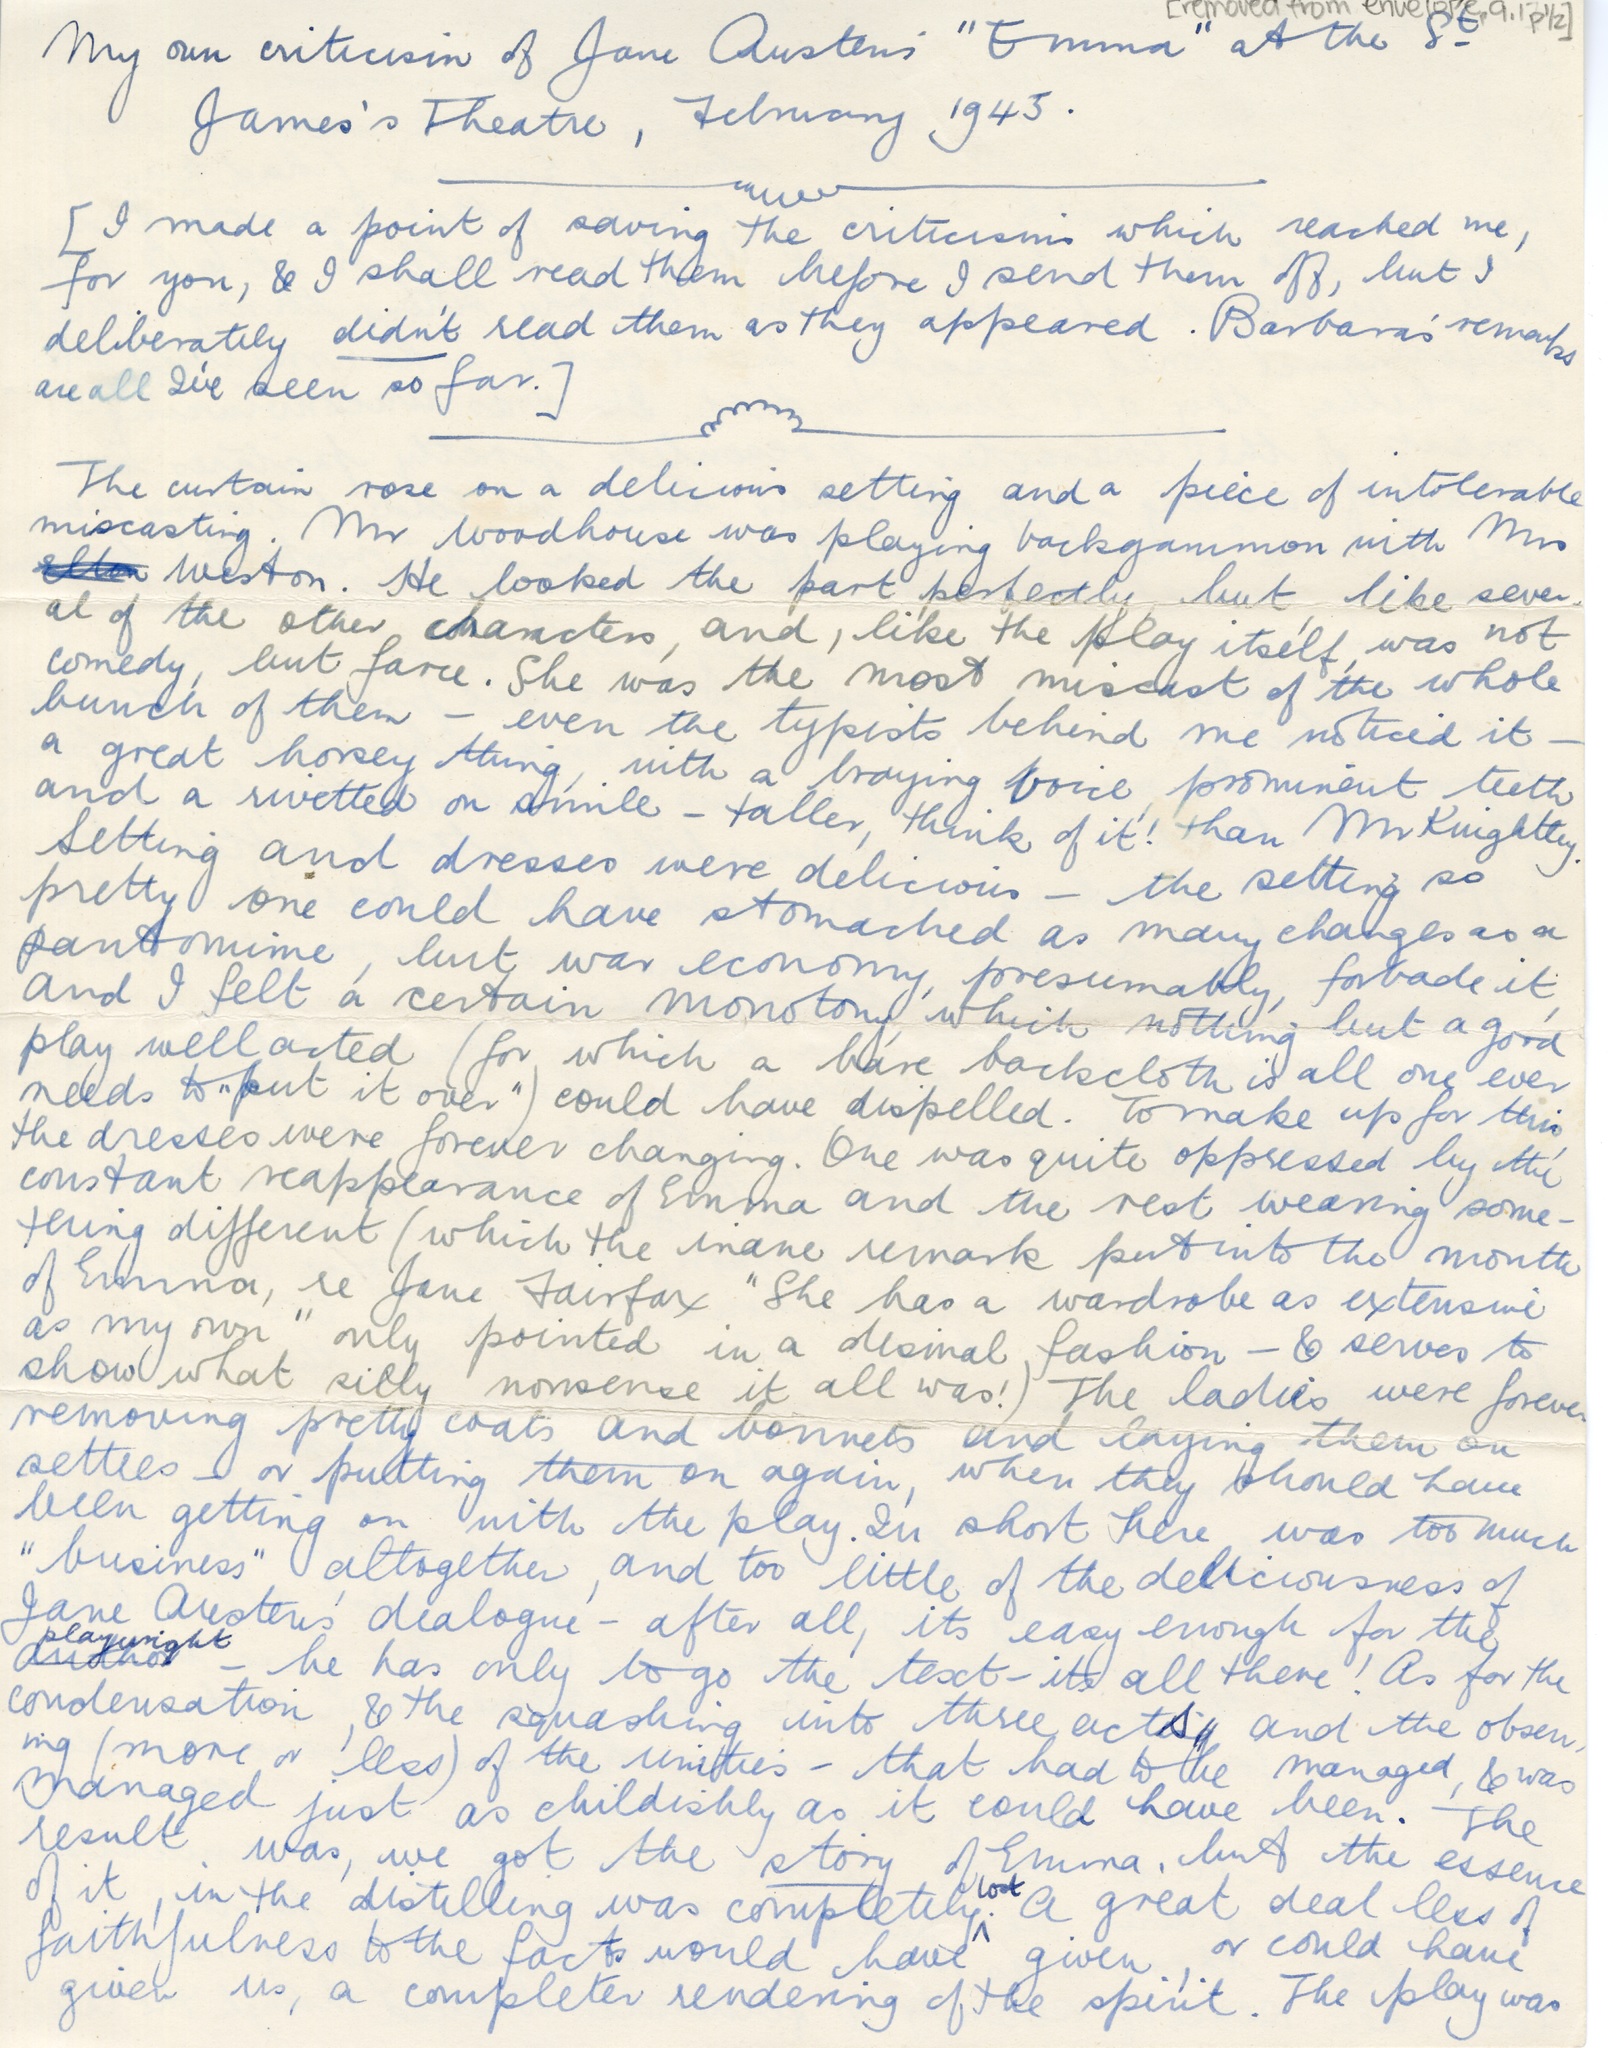 [removed from envelope, 9.17 p1/2]
My own criticism of Jane Austen's "Emma" at the St
James's Theatre, February 1945.
[I made a point of saving the criticisms which reached me,
for you, & I shall read them before I send them off, but I
deliberately didn't read them as they appeared. Barbara's remarks
are all I've seen so far.]
The curtain rose on a delicious setting and a piece of intolerable
miscasting. Mr Woodhouse was playing backgammon with Mrs
Elton Weston. He looked the part perfectly, but, like sever-
al of the other characters, and, like the play itself, was not
comedy, but farce. She was the most miscast of the whole
bunch of them – even the typists behind me noticed it –
a great horsey thing, with a braying voice, prominent teeth
and a rivetted on smile – taller, think of it! than Mr Knightley.
Setting and dresses were delicious – the setting so
pretty one could have stomached as many changes as a
pantomime, but war economy, presumably, forbade it,
and I felt a certain monotony which nothing but a good
play well acted (for which a bare backcloth is all one ever
needs to "put it over") could have dispelled. To make up for this
the dresses were forever changing. One was quite oppressed by the
constant reappearance of Emma and the rest wearing some-
thing different (which the inane remark put into the mouth
of Emma, re Jane Fairfax "She has a wardrobe as extensive
as my own" only pointed in a dismal fashion – & serves to
show what silly nonsense it all was!) The ladies were forever
removing pretty coats and bonnets and laying them on
settees – or putting them on again, when they should have
been getting on with the play. In short there was too much
"business" altogether, and too little of the deliciousness of
Jane Austen's dialogue – after all, its easy enough for the
playwright
author – he has only to go the text – its all there! As for the
condensation, & the squashing into three acts, and the observ-
ing (more or less) of the unities – that had to be managed, & was
managed just as childishly as it could have been. The
result was, we got the story of Emma, but the essence
of it, in the distilling was completely lost. A great deal less of
faithfulness to the facts would have given, or could have
given us, a completer rendering of the spirit. The play was